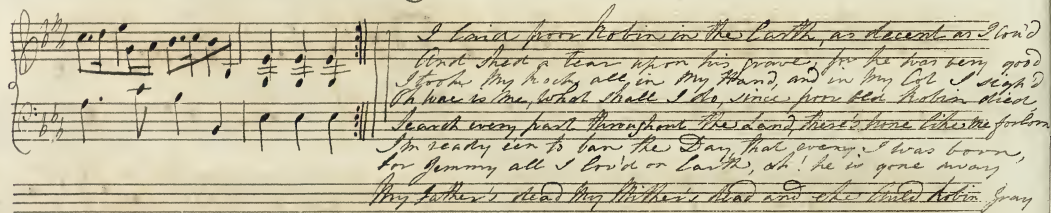 I laid poor Robin in the Earth, as decent as I cou'd
And shed a tear upon his grave, for he was very good
I took my Rock, all in my Hand, and in my Cot I sigh'd
Oh wae is me, what shall I do, since poor old Robin died,
Search every part throughout the Land, there's none like me forlorn
I'm ready een to ban the Day, that ever I was born,
for Jemmy all I lov'd on Earth, ah! he is gone away
My Father's dead My Mither's dead and eke Auld Robin Gray